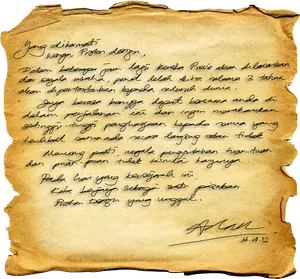 Yang dihormati
Warga Proton sekalian,
Dalam beberapa jam lagi kereta Preve akan dilancarkan
dan segala usaha, penat lelah kita selama 3 tahun
akan dipertontonkan kepada seluruh dunia.
Saya berasa bangga dapat bersama anda di
dalam perjalanan ini dan ingin merakamkan
setinggi-tinggi penghargaan kepada semua yang
terlibat samada secara langsung atau tidak
Memang pasti segala pengorbanan tuan-tuan
dan puan-puan tidak ternilai harganya.
Pada hari yang bersejarah ini
Kita berjaya sebagai satu pasukan
Proton yang unggul.
16.4.12